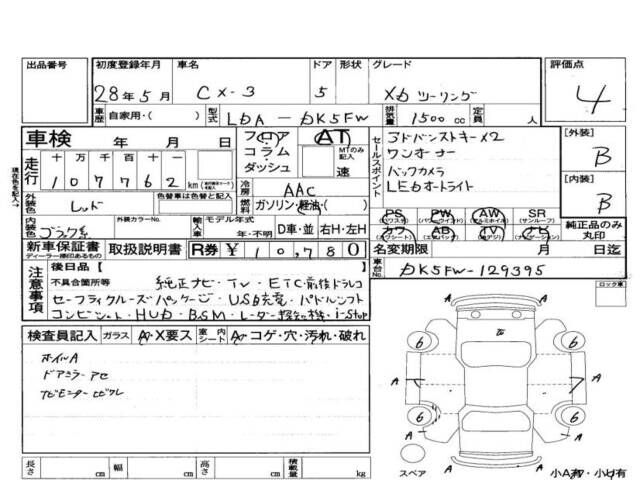 出品番号 初度登録年月 車名 ドア 形状 グレード 評価点
28年5月 CX-3 5 XD ツーリング 4
車歴 自家用・( ) 型式 LDA-DK5FW 排気量 1500 cc 定員 人
車検 年 月 日 フロア AT セールスポイント アドバンストキーX2 [外装]
コラム MTのみ記入 ワンオーナー B
走行 十万千百十一 ダッシュ 速 バックカメラ
107762 km LEDオートライト [内装]
冷房 AAC B
外装色 レッド 燃料 ガソリン・軽油・( ) PS PW AW SR
内装色 ブラック系 外装カラーNo. 輸入車 モデル年式 カワ AB TV ナビ 純正品のみ丸印
年・不明 D車・並 右H・左H
新車保証書 取扱説明書 R券 ¥10,780 名変期限 月 日迄
ディーラー捺印あるもの 車台No. DK5FW-129395
注意事項 後日品【 】 ロック車
不具合箇所等 純正ナビ・TV・ETC・前後ドラレコ
セーフティクルーズパッケージ・USB充電・パドルシフト
コンビシート・HUD・BSM・レーダー・i-stop
検査員記入 ガラス A・X要ス 室内 シート A・コゲ・穴・汚れ・破れ
ホイルA
ドアミラーアセ
長さ cm 幅 cm 高さ cm 積載量 kg
6 6 6 6
A A A A A A
スペア 小A有・小U有
現在色を記入